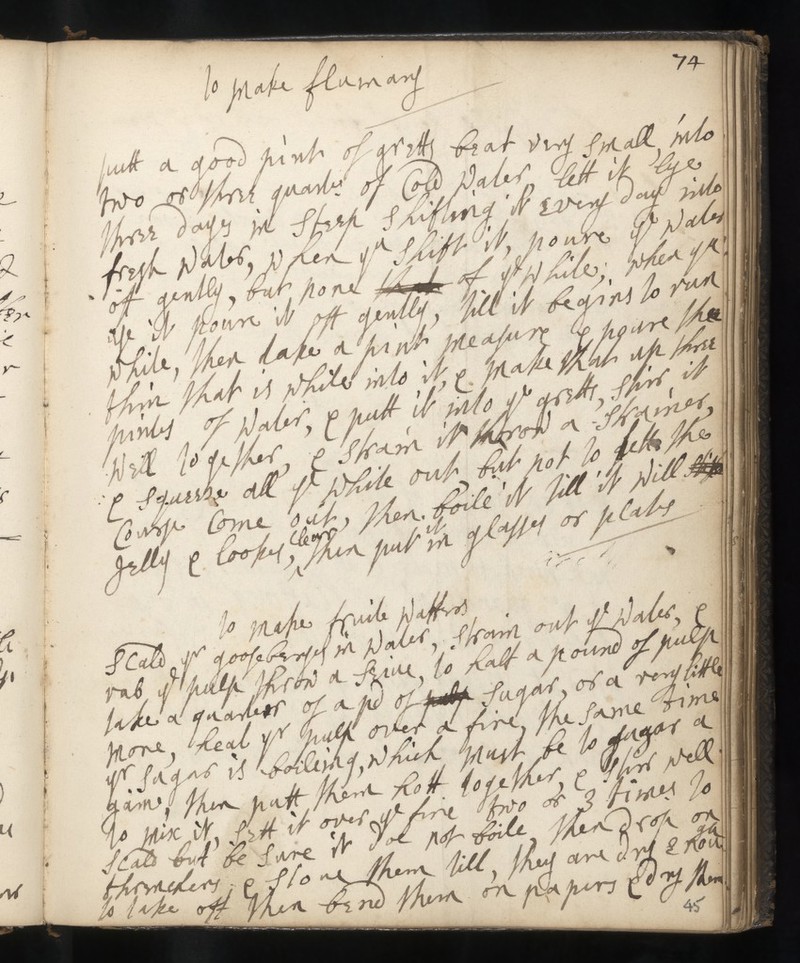 74
To make flumary
putt a good pint of gretts beat very small into
two or three quarts of Cold Water, lett it lye
three days in steep shifting it every day into
fresh Water, when yu shift it, poure ye Water
off gently, but none of ye while; when yu
use it poure it off gently, till it begins to run
while, then take a pint measure & poure the
thin that is while into it, & make that up three
pintes of Water, & putt it into ye gretts, stirr it
Well together, & strain it throw a strainer,
& squeese all ye while out, but not to lett the
Course Come out, then boile it till it will
Jelly & lookes Clear, then put it in glasses or plats
To make fruite Waffers
Scald yr gooseberyes in Water, strain out ye Water, &
rub ye pulp throw a seive, to half a pound of pulp
take a quarter of a pd of sugar, or a very little
more, heat yr pulp over a fire, the same time
yr sugar is boileing, which must be to sugar a
gaine, then putt them hott together, & stirr well
to mix it, sett it over ye fire two or 3 times to
Scald but be sure it doe not boile, then drop on
& stove them till, they are dry enough
to take off then bend them on papers & dry them
45